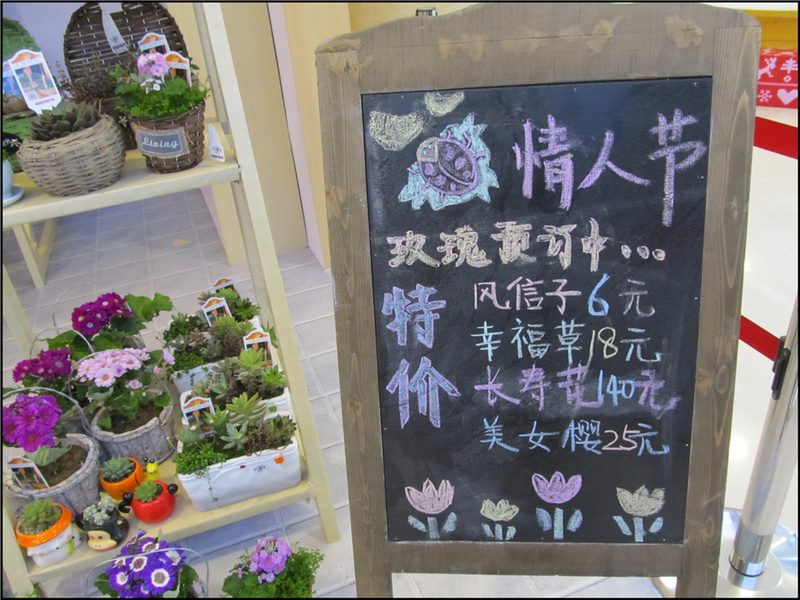 情人节
玫瑰预订中...
特价
风信子6元
幸福草18元
长寿花140元
美女樱25元
Living